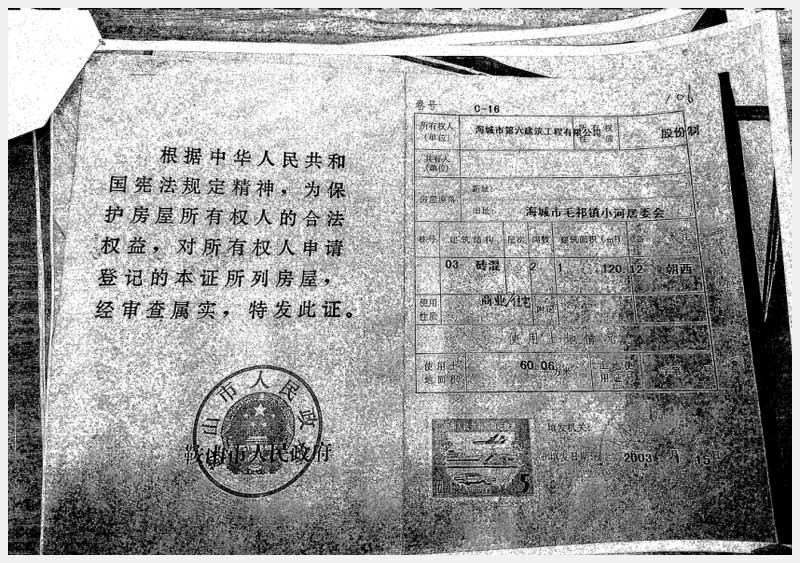 根据中华人民共和
国宪法规定精神，为保
护房屋所有权人的合法
权益，对所有权人申请
登记的本证所列房屋，
经审查属实，特发此证。
山市人民政
鞍山市人民政府
卷号 C-16
106
所有权人
(单位) 海城市第六建筑工程有限公司 所有权
性质 股份制
共有人
(单位)
房屋座落 新址:
旧址: 海城市毛祁镇小河居委会
卷号 建筑结构 层次 间数 建筑面积(m²)
03 砖混 2 1 120.12 朝西
使用
性质 商业/住宅 附记
使用土地情况
使用土
地面积 60.06 土地使
用证
填发机关:
填发日期: 2003 1 15
5